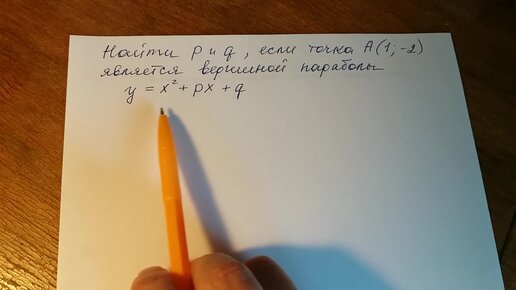 Найти p и q, если точка A(1;-2)
является вершиной параболы
y = x² + px + q